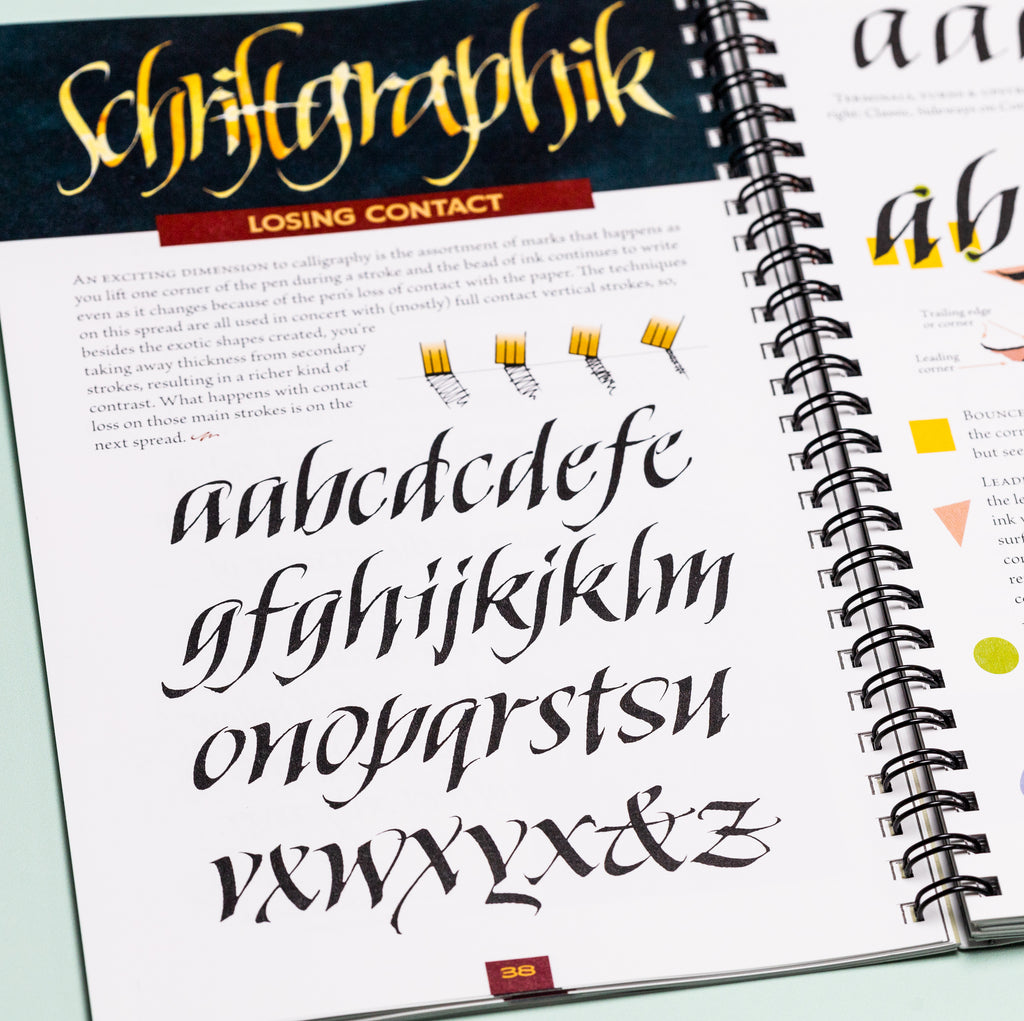 Schriftgraphik
LOSING CONTACT
AN EXCITING DIMENSION to calligraphy is the assortment of marks that happens as
you lift one corner of the pen during a stroke and the bead of ink continues to write
even as it changes because of the pen's loss of contact with the paper. The techniques
on this spread are all used in concert with (mostly) full contact vertical strokes, so,
besides the exotic shapes created, you're
taking away thickness from secondary
strokes, resulting in a richer kind of
contrast. What happens with contact
loss on those main strokes is on the
next spread.
aabcdcdefe
gfghijkjklm
onopqrstsu
vxwxyx&z
38
aa
TERMINALS
right: Classic, Sideways on
ab
Trailing edge
or corner
Leading
corner
BOUNCE
the corn
but see
LEAD
the le
ink
surf
co
re
c